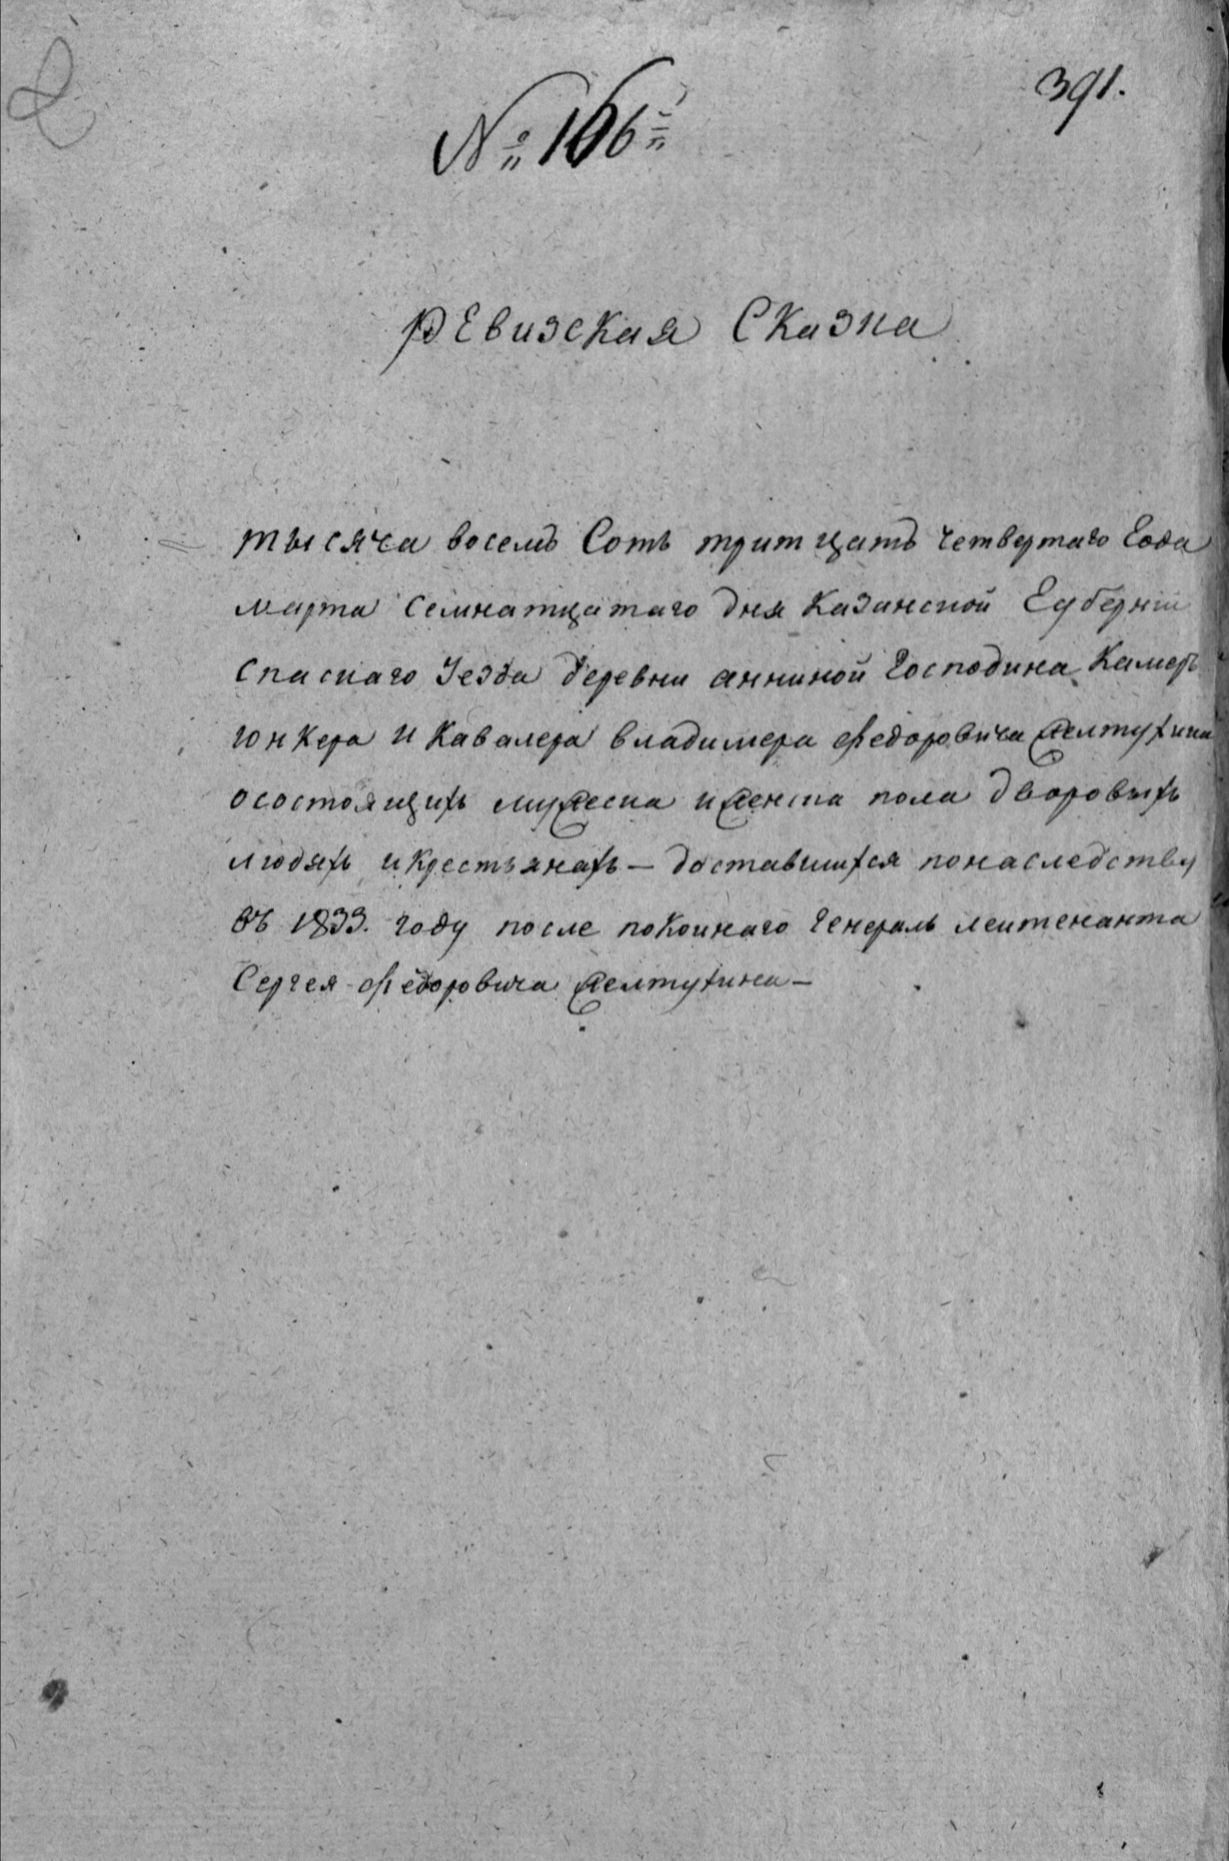 391.
№ 106
Ревизская Сказка
тысяча восемь Сотъ тритцать четвертаго Года
марта семнатцатаго дня Казанской Губерніи
спаскаго Уезда деревни анниной Господина Камеръ
юнкера и Кавалера владимера федоровича желтухина
осостоящихъ мужеска иженска пола дворовыхъ
людяхъ икрестьянахъ — доставшихся понаследству
въ 1833. году после покоинаго Генералъ леитенанта
Сергея федоровича желтухина —